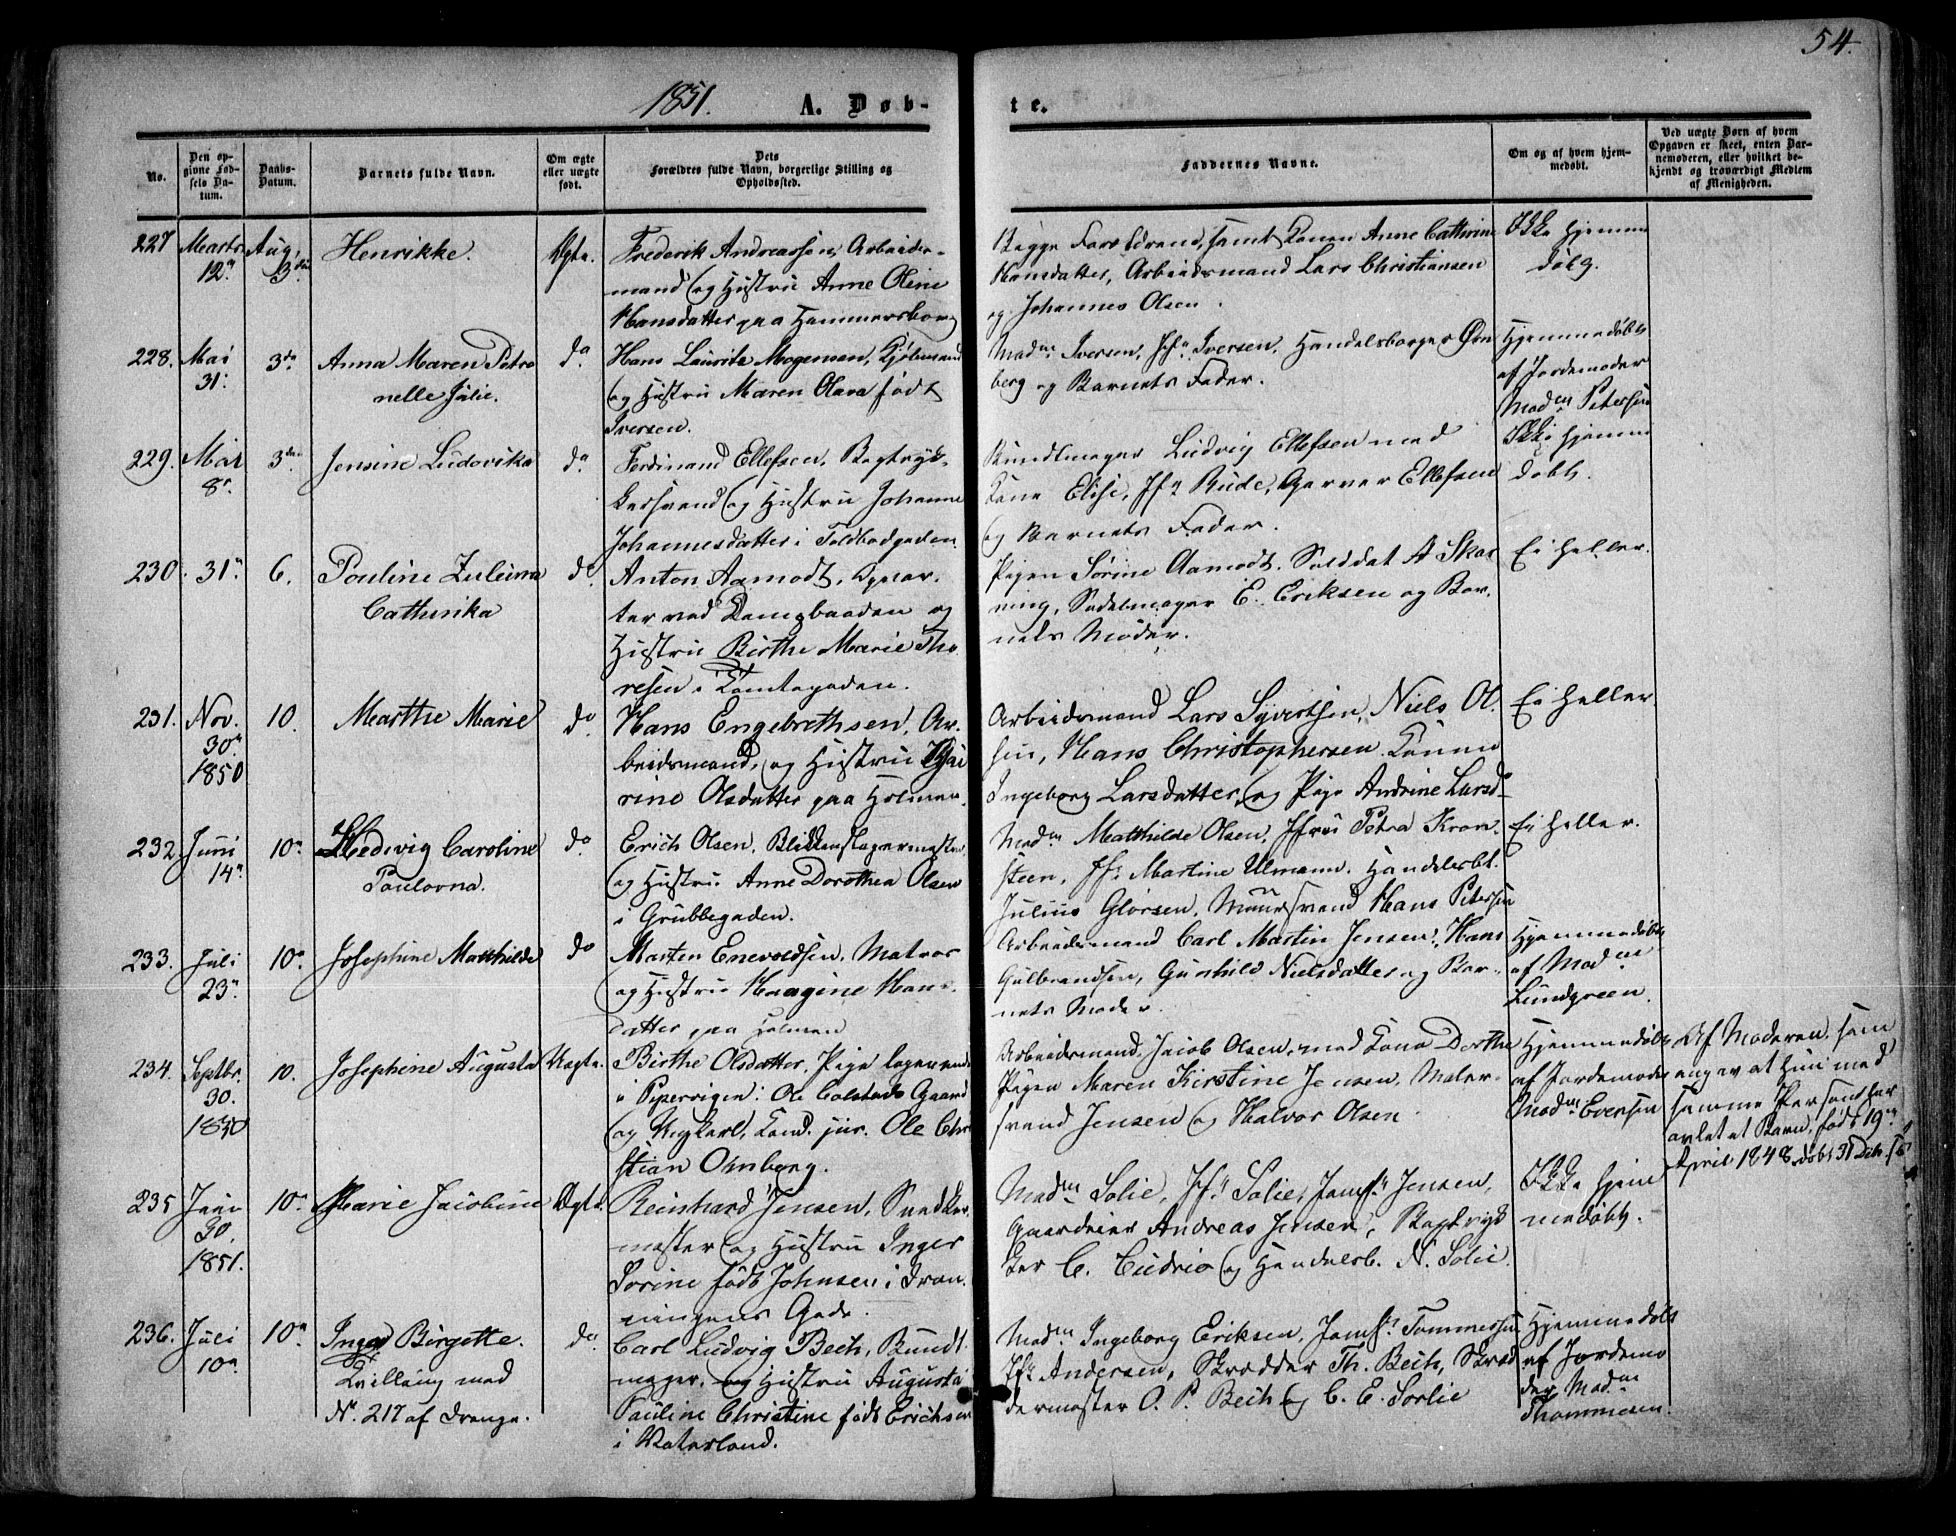 54.
1851. A. Døb-
te.
No.
Den op-
givne Fød-
sels Da-
tum.
Daabs-
Datum.
Barnets fulde Navn.
Om ægte
eller uægte
født.
Dets
Forældres fulde Navn, borgerlige Stilling og
Opholdssted.
Faddernes Navne.
Om og af hvem hjem-
medøbt.
Ved uægte Børn af hvem
Opgaven er skeet, enten Bar-
nemoderen, eller hvilket be-
kjendt og troværdigt Medlem
af Menigheden.
227 Marts 12. Aug. 3die
Henrikke.
Ægte.
Frederik Andreassen, Arbeider-
mand og Hustru Anne Oline
Hansdatter paa Hammersborg
Begge Forældrene, samt Konen Anne Cathrine
Hansdatter, Arbeidsmand Lars Christiansen
og Johannes Olsen.
Ikke hjemme
døbt.
228. Mai 31. 3die
Anna Maren Petro
nelle Julie.
do
Hans Lauritz Mogensen, Kjøbmand
og Hustru Maren Olava født
Iversen.
Madm Iversen, Jfr Iversen, Handelsborger Øvn
berg og Barnets Fader.
Hjemmedøbt
af Jordemoder
Madm Petersen
229. Mai 8. 3die
Jensine Ludovika
do
Ferdinand Ellefsen, Bogtryk-
kersvend og Hustru Johanne
Johannesdatter i Toldbodgaden.
Bundtmager Ludvig Ellefsen med
Kone Elise, Jfr Rude, Garver Ellefsen
og Barnets Fader.
Ikke hjemme
døbt.
230. 31. 6.
Pouline Zuleima
Cathinka
do
Anton Aamodt, Opvar-
ter ved Dampbaaden og
Hustru Birthe Marie Tho-
resen i Tomtegaden.
Pigen Sørine Aamodt, Soldat A Skar
ning, Sadelmager E. Eriksen og Bar-
nets Moder.
Ei heller.
231. Nov. 30. 1850 10.
Marthe Marie
do
Hans Engebrethsen, Ar-
beidsmand, og Hustru
rine Olsdatter paa Holmen.
Arbeidsmand Lars Syvertsen, Niels Ol-
sen, Hans Christophersen, Konen
Ingeborg Larsdatter, og Pige Andrine Larsd.
Ei heller.
232. Juni 14. 10.
Hedevig Caroline
Paulovna.
do
Erich Olsen, Blikkenslagermester
og Hustru Anne Dorothea Olsen
i Grubbegaden.
Madm Matthilde Olsen, Jfru Petra Kron-
steen, Jfr Martine Ulmann, Handelsbt.
Julius Glørsen, Muursvend Hans Petersen
Ei heller.
233. Juli 23. 10.
Josephine Matthilde
do
Morten Enevoldsen, Matros
og Hustru Haagine Hans-
datter paa Holmen
Arbeidsmand Carl Martin Jensen, Hans
Gulbrandsen, Gunhild Nielsdatter og Bar-
nets Moder.
Hjemmedøbt
af Madm
Lundgreen.
234. Septbr. 30. 1850 10.
Josephine Augusta
Uægte.
Birthe Olsdatter, Pige logerende
i Pipervigen i Ole Colstads Gaard
og Ungkarl, Cand. jur. Ole Chri
stian Omborg.
Arbeidsmand Jacob Olsen, med Kone Dorthe
Pigen Maren Kirstine Jensen, Maler-
svend Jensen og Halvor Olsen
Hjemmedøbt
af Jordemoder
Madm Evensen
Af Moderen, som
angav at hun med
samme Person har
avlet et Barn, født 19de
April 1848, døbt 31 Dcb. s. A.
235 Juni 30. 1851. 10.
Marie Jacobine
Ægte.
Reinhard Jensen, Snedker-
mester og Hustru Inger
Sorine født Johnsen i Dron-
ningens Gade.
Madm Solie, Jfr Solie, Jomfr Jensen,
Gaardeier Andreas Jensen, Bogtryk
ker C. Cudrio og Handelsb. N. Solie.
Ikke hjem
medøbt.
236. Juli 10. 10.
Inger Birgette.
Tvilling med
Nr. 217 af Drenge.
do
Carl Ludvig Bech, Bundt-
mager, og Hustru Augusta
Pauline Christine født Erichsen
i Vaterland.
Madm Ingeborg Eriksen, Jomfr Tommesen
Jfr Andersen, Skrædder Th. Bech, Skræd
dermester O. P. Bech og C. E. Sorlie
Hjemmedøbt
af Jordemo
der Madm
Thommesen.